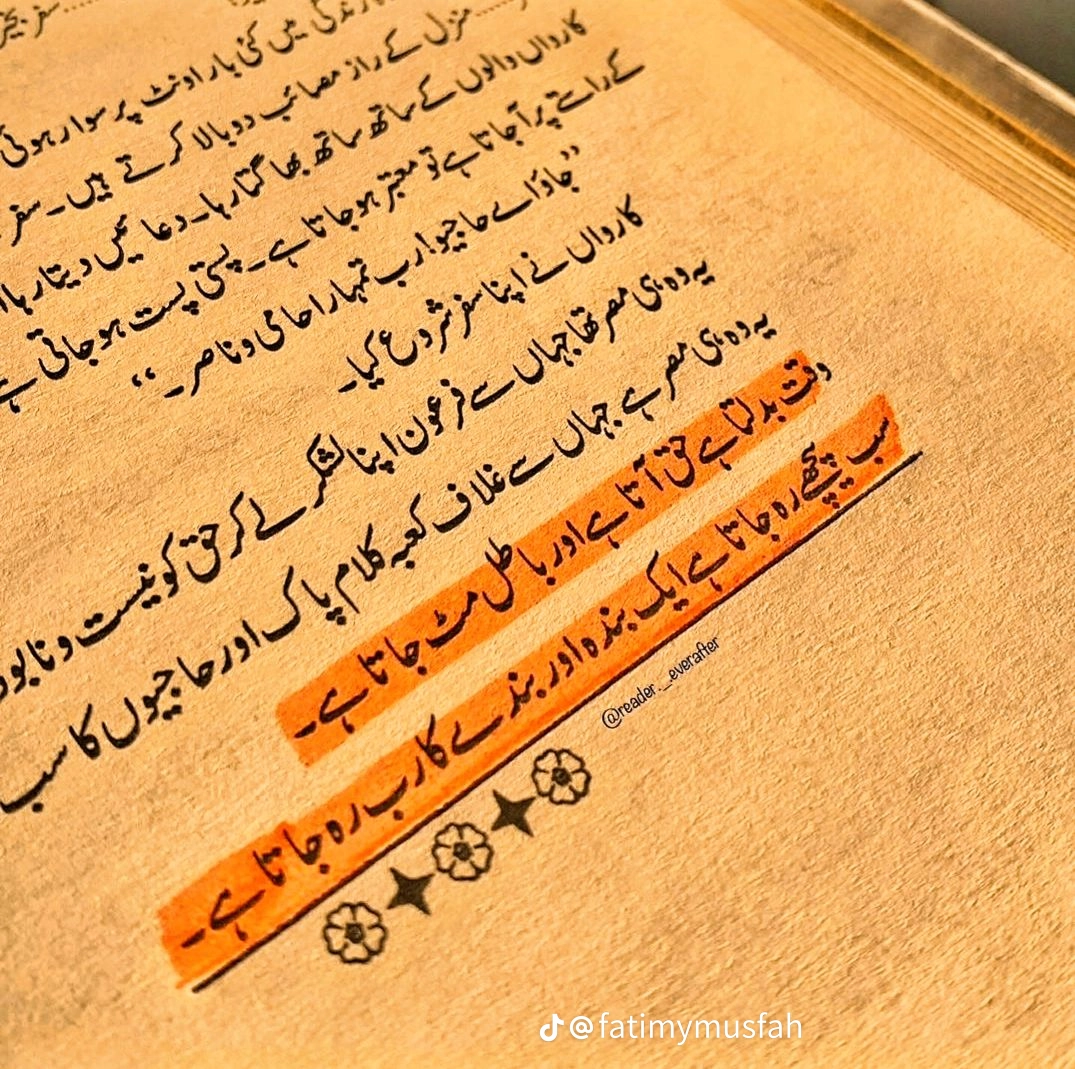 سفر بخیر
زندگی میں کئی بار اونٹ پر سوار ہوئی
منزل کے راز مصائب دوبالا کرتے ہیں۔ سفر
کارواں والوں کے ساتھ ساتھ بھاگتا رہا۔ دعائیں دیتا رہا
کے راستے پر آ جاتا ہے تو معتبر ہو جاتا ہے۔ پستی پست ہو جاتی ہے
”جاؤ اے حاجیو! رب تمہارا حامی و ناصر۔“
کارواں نے اپنا سفر شروع کیا۔
یہ وہ ہی مصر تھا جہاں سے فرعون اپنا لشکر لے کر حق کو نیست و نابود
یہ وہ ہی مصر ہے جہاں سے غلاف کعبہ کلام پاک اور حاجیوں کا سب
وقت بدلتا ہے حق آتا ہے اور باطل مٹ جاتا ہے۔
سب پیچھے رہ جاتا ہے ایک بندہ اور بندے کا رب رہ جاتا ہے۔
@reader._.everafter
@fatimymusfah